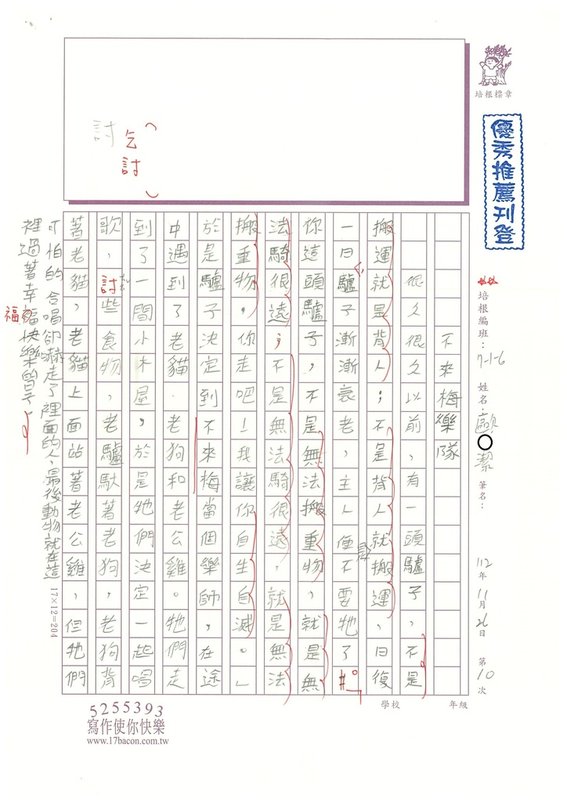 培根標章
優秀推薦刊登
培根編班：7-1-6 姓名：歐○潔 筆名： 112年11月26日 第10次
年級
學校
不來梅樂隊
很久很久以前，有一頭驢子，不是
搬運就是背人；不是背人就搬運，日復
一日，驢子漸漸衰老，主人便不要牠了。
你這頭驢子，不是無法搬重物，就是無
法騎很遠；不是無法騎很遠，就是無法
搬重物，你走吧！我讓你自生自滅。」
於是驢子決定到不來梅當個樂師，在途
中遇到了老貓．老狗和老公雞。牠們走
到了一間小木屋，於是牠們決定一起唱
歌，討些食物，老驢馱著老狗，老狗背
著老貓，老貓上面站著老公雞，但牠們
可怕的合唱卻嚇走了裡面的人，最後動物就在這
裡過著幸福快樂的日子
福
乞討
討
17×12=204
5255393
寫作使你快樂
www.17bacon.com.tw